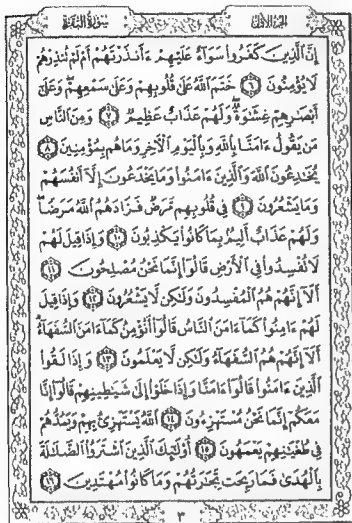 الجزء الأول سورة البقرة
إِنَّ الَّذِينَ كَفَرُوا سَوَاءٌ عَلَيْهِمْ ءَأَنذَرْتَهُمْ أَمْ لَمْ تُنذِرْهُمْ
لَا يُؤْمِنُونَ ٦ خَتَمَ اللَّهُ عَلَىٰ قُلُوبِهِمْ وَعَلَىٰ سَمْعِهِمْ وَعَلَىٰ
أَبْصَارِهِمْ غِشَاوَةٌ وَلَهُمْ عَذَابٌ عَظِيمٌ ٧ وَمِنَ النَّاسِ
مَن يَقُولُ ءَامَنَّا بِاللَّهِ وَبِالْيَوْمِ الْآخِرِ وَمَا هُم بِمُؤْمِنِينَ ٨
يُخَادِعُونَ اللَّهَ وَالَّذِينَ ءَامَنُوا وَمَا يَخْدَعُونَ إِلَّا أَنفُسَهُمْ
وَمَا يَشْعُرُونَ ٩ فِي قُلُوبِهِم مَّرَضٌ فَزَادَهُمُ اللَّهُ مَرَضًا
وَلَهُمْ عَذَابٌ أَلِيمٌ بِمَا كَانُوا يَكْذِبُونَ ١٠ وَإِذَا قِيلَ لَهُمْ
لَا تُفْسِدُوا فِي الْأَرْضِ قَالُوا إِنَّمَا نَحْنُ مُصْلِحُونَ ١١
أَلَا إِنَّهُمْ هُمُ الْمُفْسِدُونَ وَلَٰكِن لَّا يَشْعُرُونَ ١٢ وَإِذَا قِيلَ
لَهُمْ ءَامِنُوا كَمَا ءَامَنَ النَّاسُ قَالُوا أَنُؤْمِنُ كَمَا ءَامَنَ السُّفَهَاءُ
أَلَا إِنَّهُمْ هُمُ السُّفَهَاءُ وَلَٰكِن لَّا يَعْلَمُونَ ١٣ وَإِذَا لَقُوا
الَّذِينَ ءَامَنُوا قَالُوا ءَامَنَّا وَإِذَا خَلَوْا إِلَىٰ شَيَاطِينِهِمْ قَالُوا إِنَّا
مَعَكُمْ إِنَّمَا نَحْنُ مُسْتَهْزِءُونَ ١٤ اللَّهُ يَسْتَهْزِئُ بِهِمْ وَيَمُدُّهُمْ
فِي طُغْيَانِهِمْ يَعْمَهُونَ ١٥ أُولَٰئِكَ الَّذِينَ اشْتَرَوُا الضَّلَالَةَ
بِالْهُدَىٰ فَمَا رَبِحَت تِّجَارَتُهُمْ وَمَا كَانُوا مُهْتَدِينَ ١٦
٣